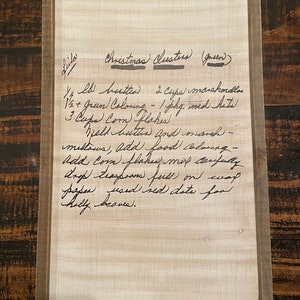 Christmas Clusters (green)
1/4 lb butter 2 Cups marshmallow
1 1/2 + green Coloring - 1 pkg red hots
3 Cups Corn Flakes
Melt butter and marsh-
mellows, add food coloring -
add corn flakes, mix carefully
drop teaspoon full on wax
paper used red dots for
holly leaves.